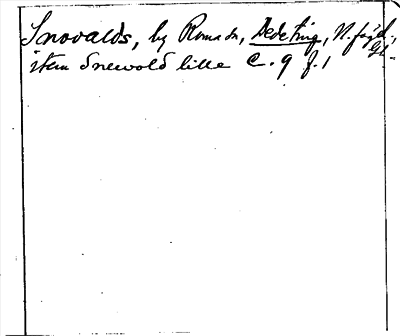 Snovalds, by Romadn, Dedeting, N. fojd.,
item Snewold lille C. 9 f. 1 Gl.